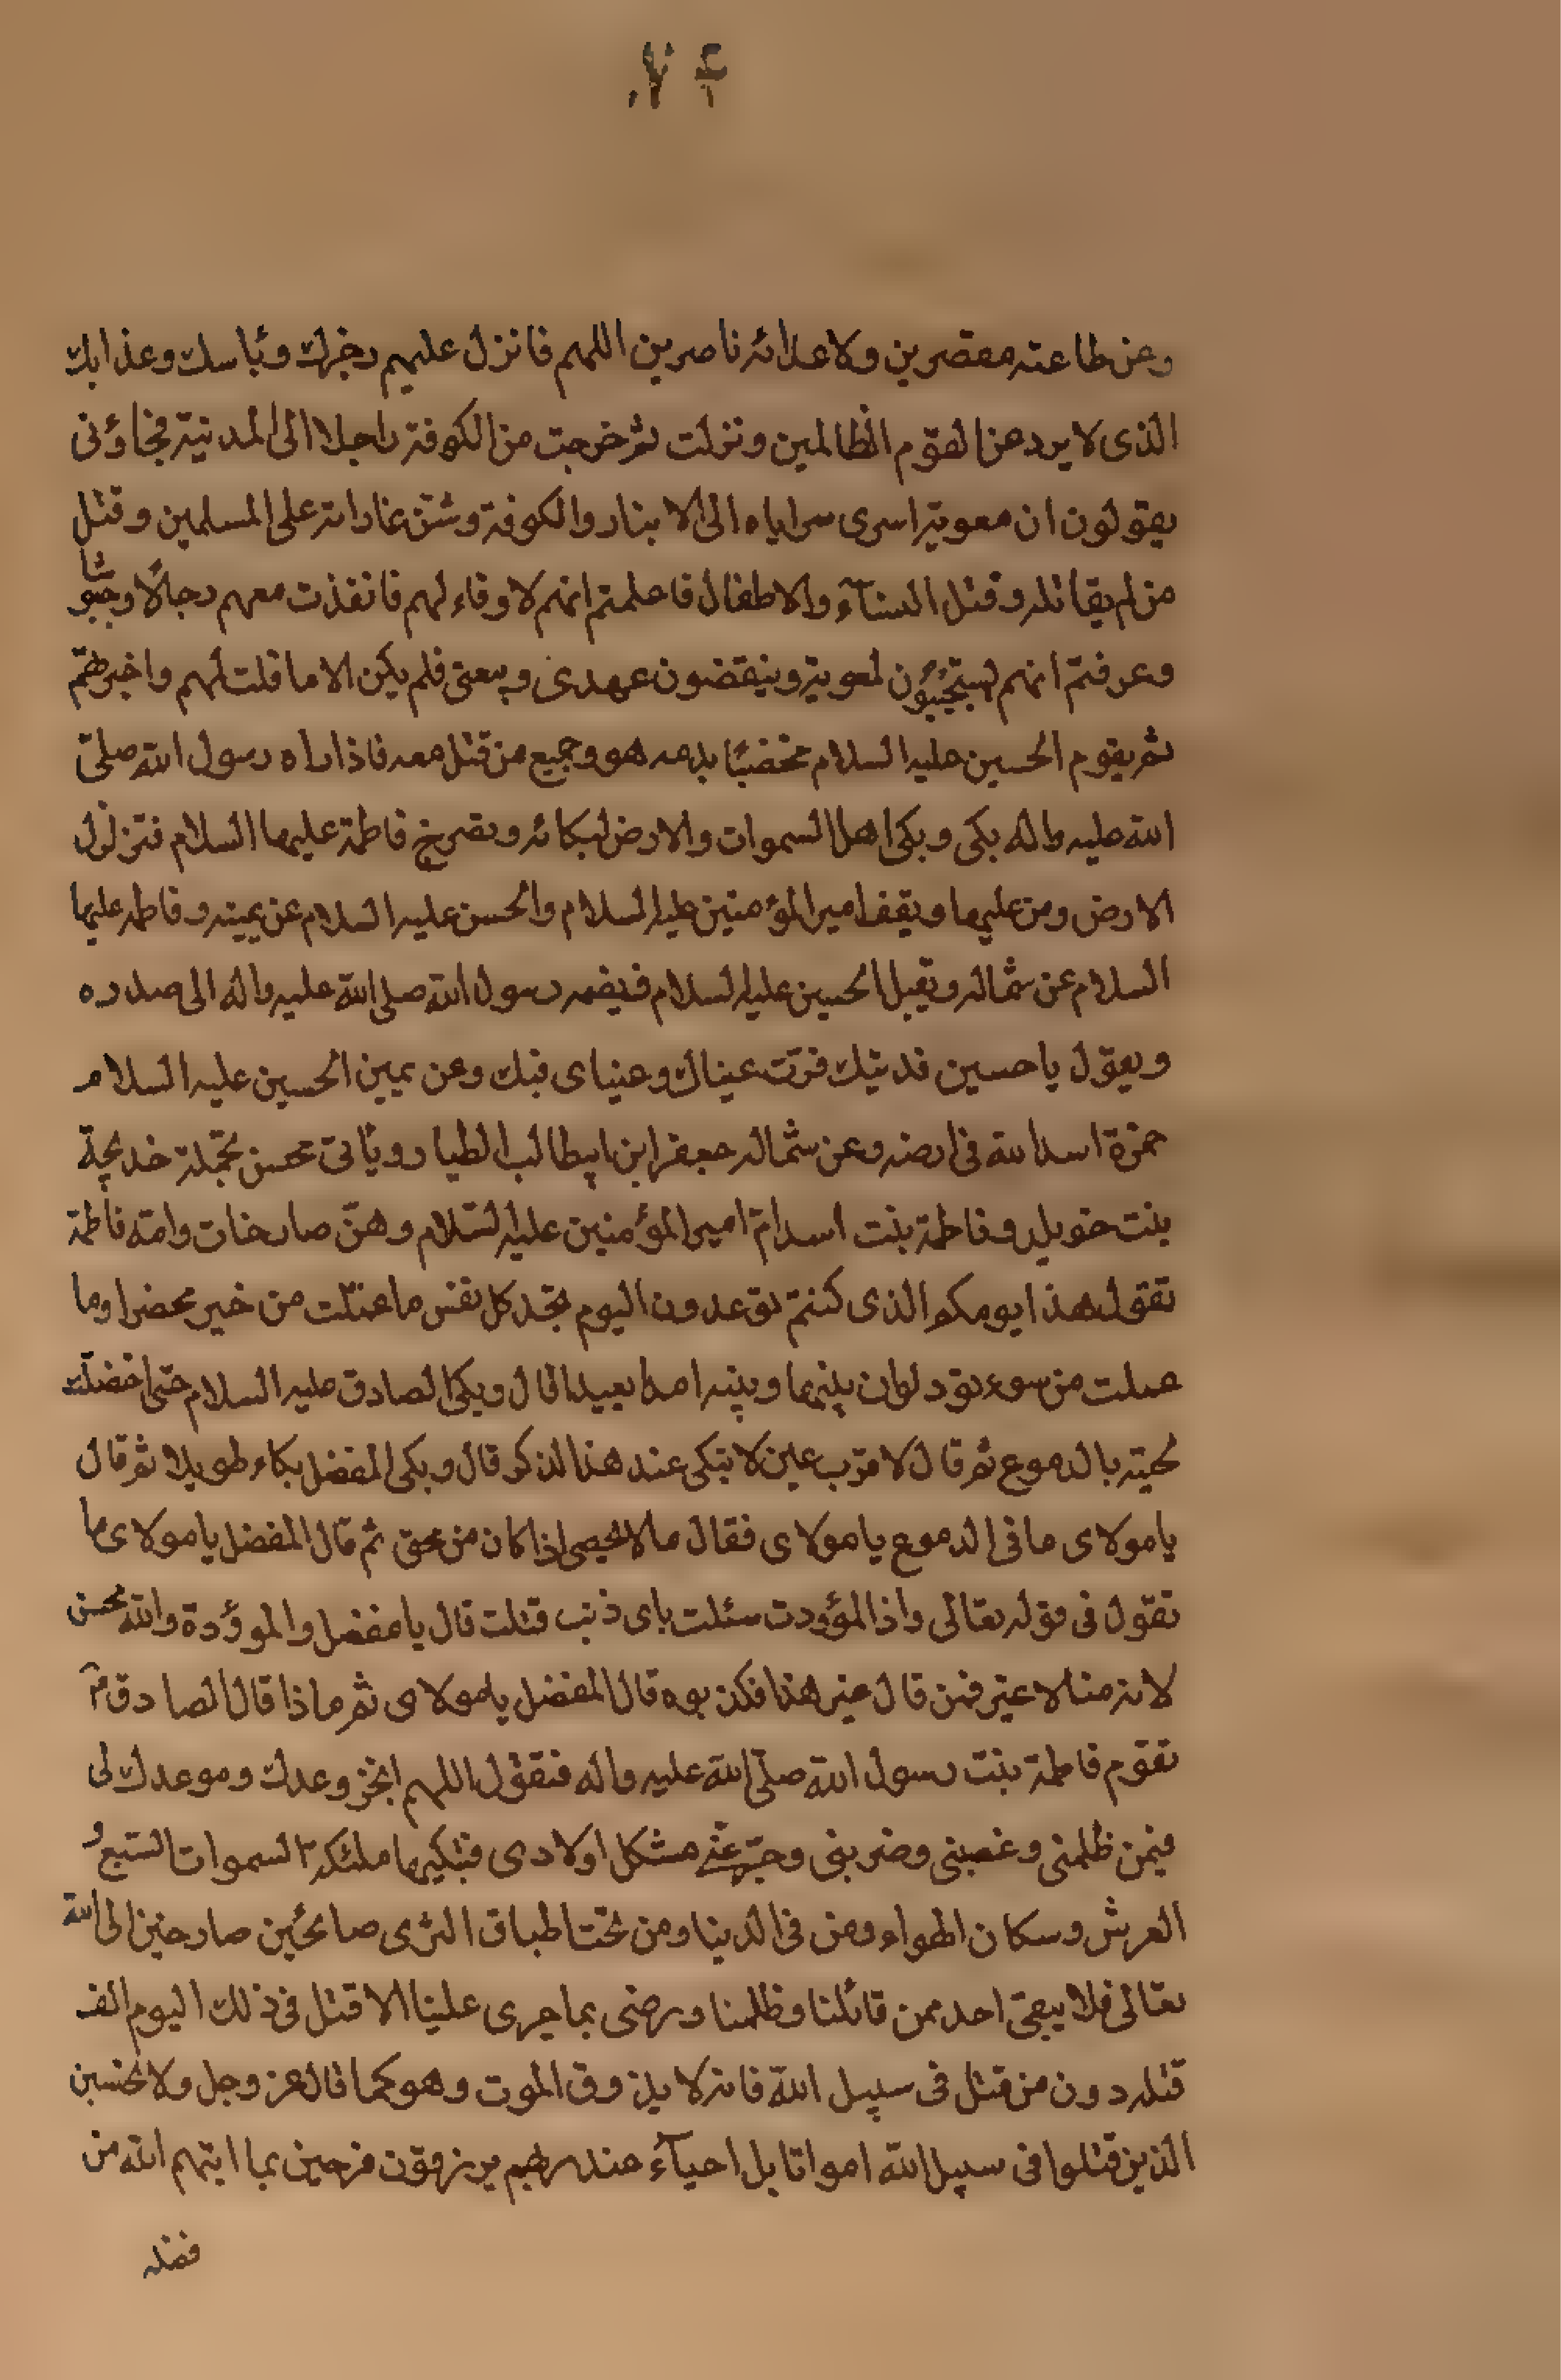 وعن طاعته مقصرين ولاعدائه ناصرين اللهم فانزل عليهم رجزك وبأسك وعذابك
الذى لا يرد عن القوم الظالمين ونزلت ثم خرجت من الكوفة راجلا الى المدنية فجاؤنى
يقولون ان معوية اسرى سراياه الى الانبار والكوفة وشن غاراته على المسلمين وقتل
من لم يقاتله وقتل النسآء والاطفال فاعلمتم انهم لا وفاء لهم فانفذت معهم رجالًا وجيوشا
وعرفتم انهم يستجيبون لمعوية وينقضون عهدى وبيعتى فلم يكن الا ما قلت لهم واخبرتهم
ثم يقوم الحسين عليه السلام مخضبًا بدمه هو وجميع من قتل معه فاذا راه رسول الله صلى
الله عليه واله بكى وبكى اهل السموات والارض لبكائه وتصرخ فاطمة عليها السلام فتزلزل
الارض ومن عليها ويقف امير المؤمنين عليه السلام والحسن عليه السلام عن يمينه وفاطمه عليها
السلام عن شماله ويقبل الحسين عليه السلام فيضمه رسول الله صلى الله عليه واله الى صدره
ويقول يا حسين فديتك قرت عيناك وعيناى فيك وعن يمين الحسين عليه السلام
حمزة اسد الله فى ارضه وعن شماله جعفر ابن ابيطالب الطيار ويأتى محسن تحمله خديجة
بنت خويلد وفاطمة بنت اسد امّ امير المؤمنين عليه السّلام وهنّ صارخات وامّه فاطمة
تقول هذا يومكم الذى كنتم توعدون اليوم تجد كل نفس ما عملت من خير محضرا وما
عملت من سوء تود لو ان بينها وبينه امدا بعيدا قال وبكى الصادق عليه السلام حتى اخضلت
لحيته بالدموع ثم قال لا قرت عين لا تبكى عند هذا الذكر قال وبكى المفضل بكاء طويلا ثم قال
يا مولاى ما فى الدموع يا مولاى فقال ما لا يحصى اذا كان من محق ثم قال المفضل يا مولاى ما
تقول فى قوله تعالى واذا المؤودت سئلت باى ذنب قتلت قال يا مفضل والموؤدة والله محسن
لانه منا لا غير فمن قال غير هذا فكذبوه قال المفضل يا مولاى ثم ماذا قال الصادق ع
تقوم فاطمة بنت رسول الله صلّى الله عليه واله فتقول اللهم انجز وعدك وموعدك لى
فيمن ظلمنى وغصبنى وضربنى اولادى فتبكيها ملئكة السموات السّبع و
العرش وسكان الهواء ومن فى الدنيا ومن تحت اطباق الثرى صائحين صارخين الى الله
تعالى فلا يبقى احد ممن قاتلنا وظلمنا ورضى بما جرى علينا الا قتل فى ذلك اليوم الف
قتله دون من قتل فى سبيل الله فانه لا يذوق الموت وهو كما قال عز وجل ولا تحسبن
الذين قتلوا فى سبيل الله امواتا بل احيآء عند ربهم يرزقون فرحين بما اتيهم الله من
فضله